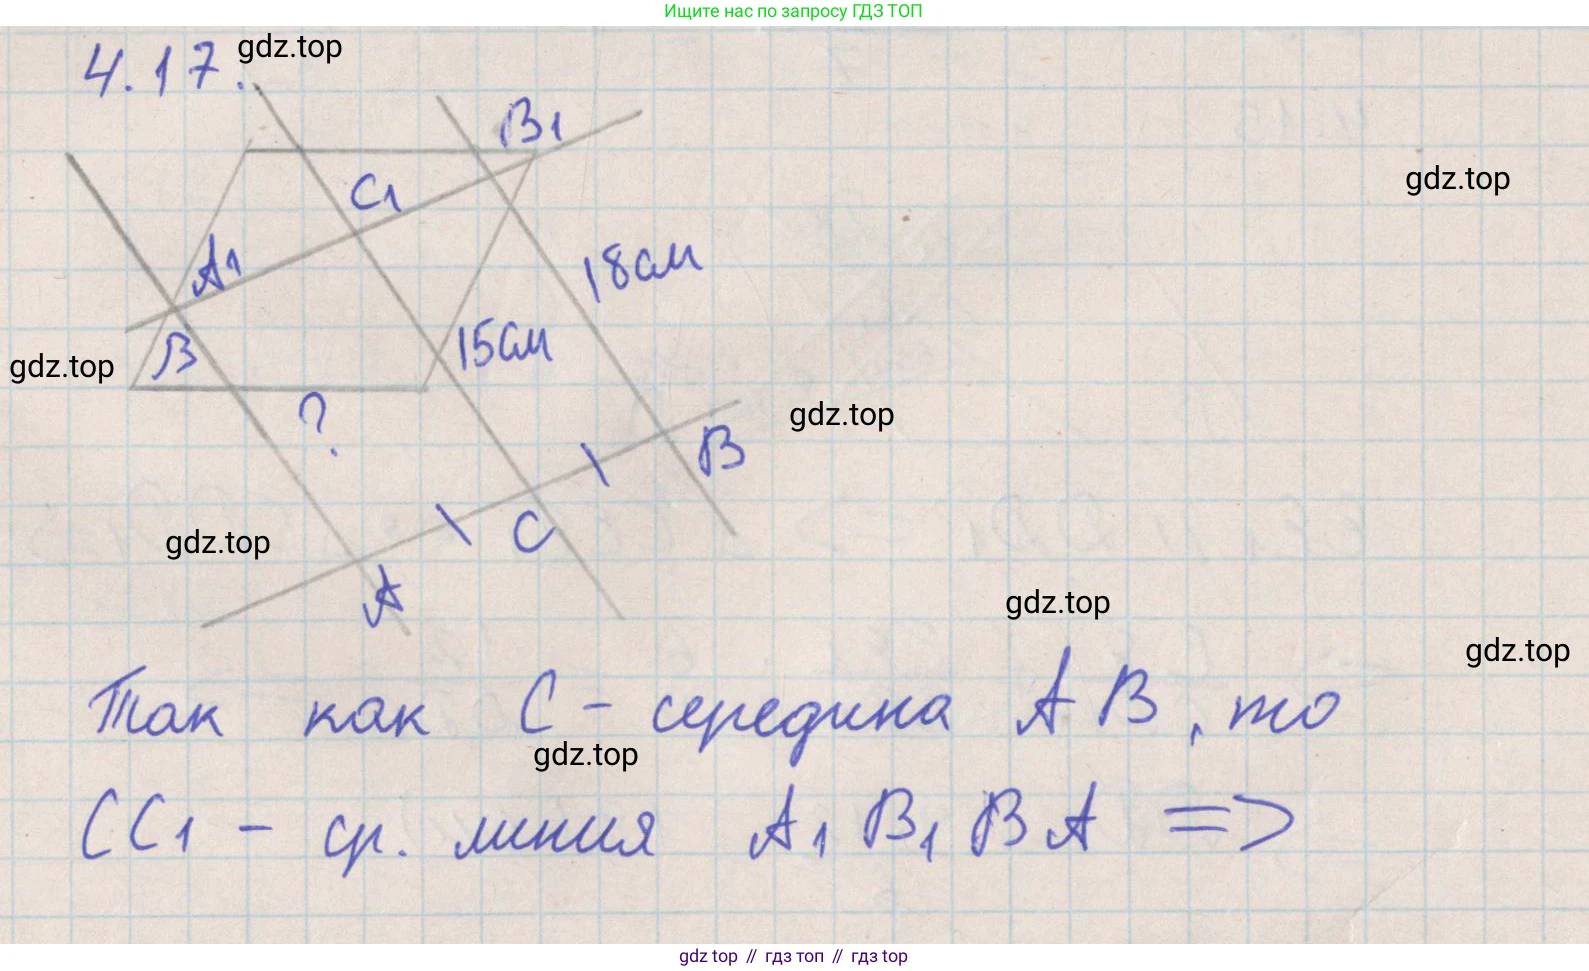 Ищите нас по запросу ГДЗ ТОП
4.17.
gdz.top
B1
C1
gdz.top
A1
18см
B
15см
gdz.top
?
gdz.top
B
C
gdz.top
A
gdz.top
gdz.top
Так как C - середина AB, то
gdz.top
CC1 - ср. линия A1B1BA =>
gdz top // гдз топ // гдз top